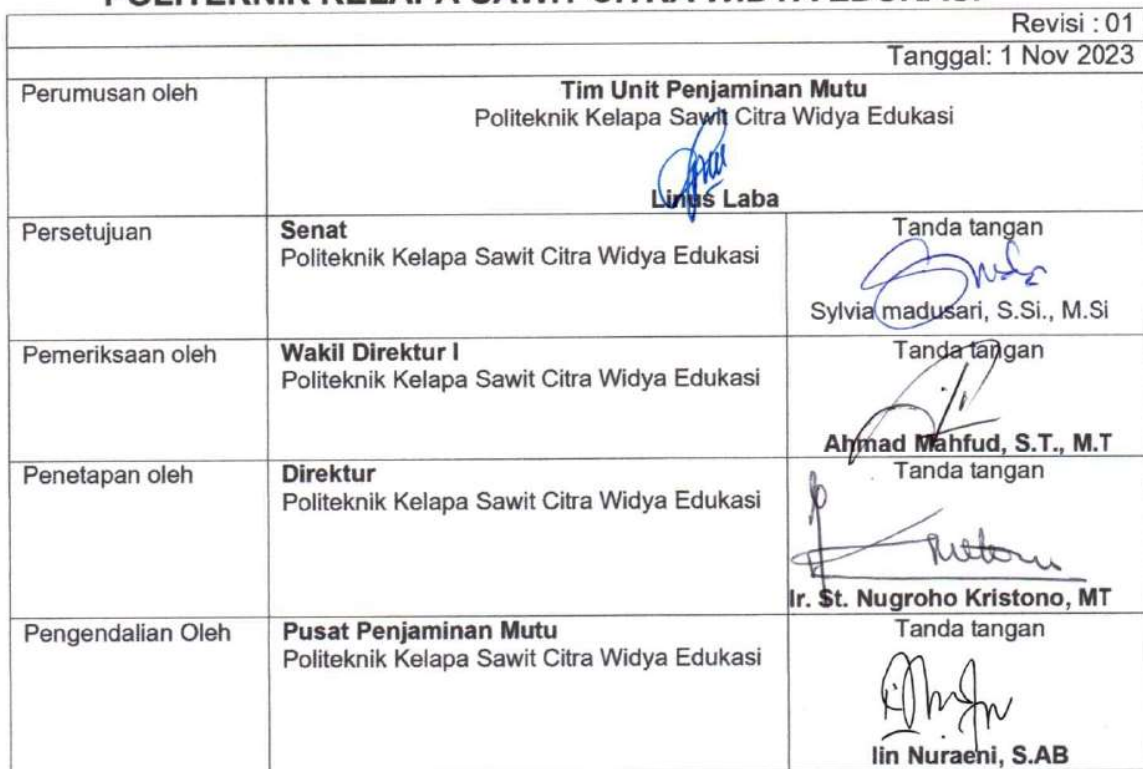 POLITEKNIK KELAPA SAWIT CITRA WIDYA EDUKASI
Revisi : 01
Tanggal: 1 Nov 2023
Perumusan oleh
Tim Unit Penjaminan Mutu
Politeknik Kelapa Sawit Citra Widya Edukasi
Linus Laba
Persetujuan
Senat
Politeknik Kelapa Sawit Citra Widya Edukasi
Tanda tangan
Sylvia madusari, S.Si., M.Si
Pemeriksaan oleh
Wakil Direktur I
Politeknik Kelapa Sawit Citra Widya Edukasi
Tanda tangan
Ahmad Mahfud, S.T., M.T
Penetapan oleh
Direktur
Politeknik Kelapa Sawit Citra Widya Edukasi
Tanda tangan
Ir. St. Nugroho Kristono, MT
Pengendalian Oleh
Pusat Penjaminan Mutu
Politeknik Kelapa Sawit Citra Widya Edukasi
Tanda tangan
Iin Nuraeni, S.AB